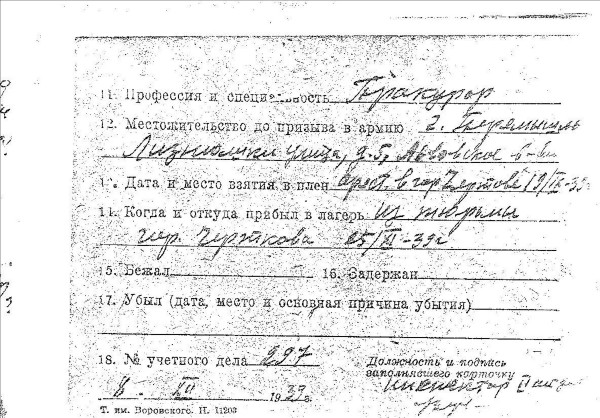 11. Профессия и специальность Прокурор
12. Местожительство до призыва в армию г. Перемышль
улица, д. 5, Львовское
13. Дата и место взятия в плен арест. в гор. Чертове 19/IX-39
14. Когда и откуда прибыл в лагерь из тюрьмы
гор. Черткова 25/XI-39г
15. Бежал 16. Задержан
17. Убыл (дата, место и основная причина убытия)
18. № учетного дела 297
Должность и подпись
заполнявшего карточку
8. XII 1939г. инспектор II
Т. им. Воровского. Н. 11203